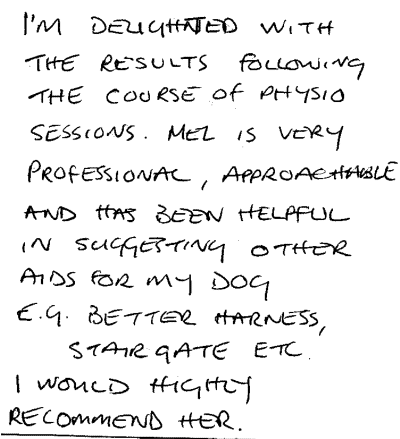 I'M DELIGHTED WITH
THE RESULTS FOLLOWING
THE COURSE OF PHYSIO
SESSIONS. MEL IS VERY
PROFESSIONAL, APPROACHABLE
AND HAS BEEN HELPFUL
IN SUGGESTING OTHER
AIDS FOR MY DOG
E.G. BETTER HARNESS,
STAIR GATE ETC.
I WOULD HIGHLY
RECOMMEND HER.